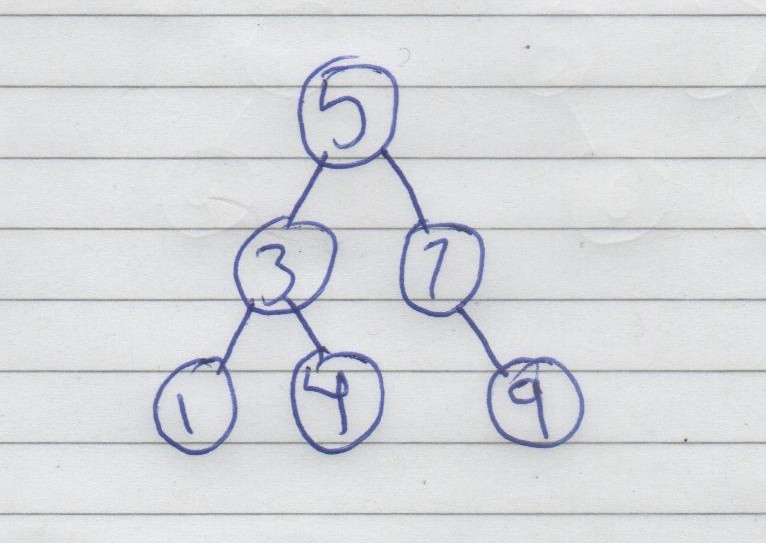 5
3 7
1 4 9